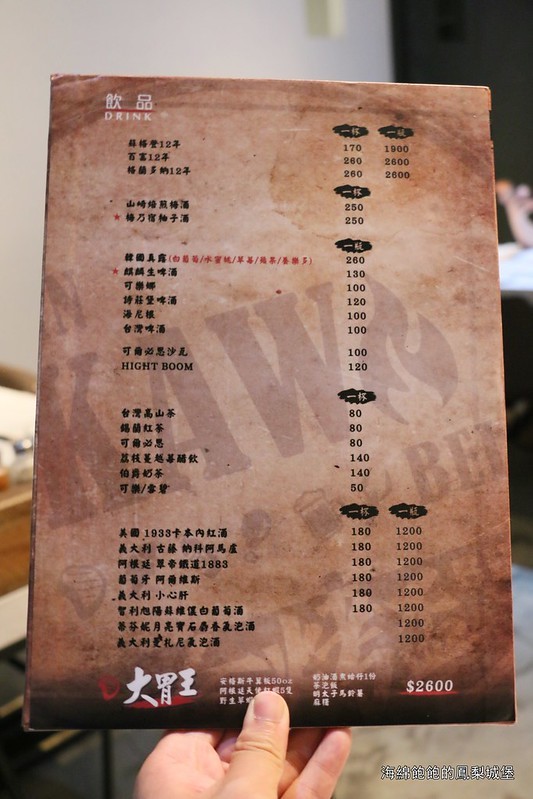 飲品
DRINK
一杯 一瓶
蘇格登12年 170 1900
百富12年 260 2600
格蘭多納12年 260 2600
一杯
山崎焙煎梅酒 250
★ 梅乃宿柚子酒 250
一瓶
韓國真露(白葡萄/水蜜桃/草莓/蘋果/養樂多) 260
★ 麒麟生啤酒 130
可樂娜 100
詩莊堡啤酒 120
海尼根 100
台灣啤酒 100
可爾必思沙瓦 100
HIGHT BOOM 120
一杯
台灣高山茶 80
錫蘭紅茶 80
可爾必思 80
荔枝蔓越莓醋飲 140
伯爵奶茶 140
可樂/雪碧 50
一杯 一瓶
美國 1933卡本內紅酒 180 1200
義大利 古藤 納科阿馬盧 180 1200
阿根廷 單帝鐵道1883 180 1200
葡萄牙 阿爾維斯 180 1200
義大利 小心肝 180 1200
智利旭陽蘇維儂白葡萄酒 180 1200
蒂芬妮月亮寶石唇香氣泡酒 1200
義大利愛札尼氣泡酒 1200
大胃王
安格斯牛 板50oz
阿根廷天使紅蝦5隻
野生草蝦
奶油酒蒸蛤仔1份
茶泡飯
明太子馬鈴薯
麻糬
$2600
海綿飽飽的鳳梨城堡